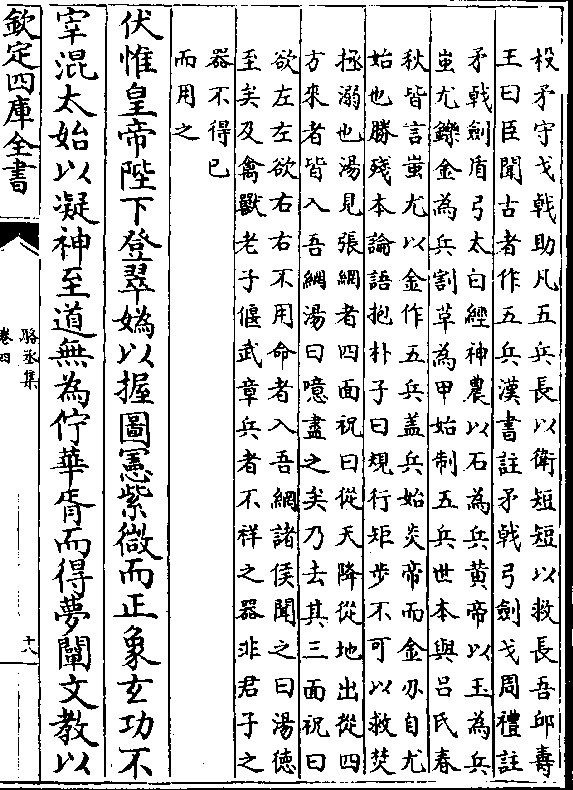 殳矛守戈戟助凡五兵長以衛短短以救長吾邱壽
王曰臣聞古者作五兵漢書註矛戟弓劍戈周禮註
矛戟劍盾弓太白經神農以石為兵黃帝以玉為兵
蚩尤鑠金為兵割革為甲始制五兵世本與呂氏春
秋皆言蚩尤以金作五兵蓋兵始炎帝而金刅自尤
始也勝殘本論語抱朴子曰規行矩步不可以救焚
拯溺也湯見張網者四面祝曰從天降從地出從四
方來者皆入吾網湯曰噫盡之矣乃去其三面祝曰
欲左左欲右右不用命者入吾網諸侯聞之曰湯徳
至矣及禽獸老子偃武章兵者不祥之器非君子之
器不得已
而用之
伏惟皇帝陛下登翠嬀以握圖憲紫微而正象玄功不
宰混太始以凝神至道無為佇華胥而得夢闡文教以
欽定四庫全書
駱丞集
卷四
十八